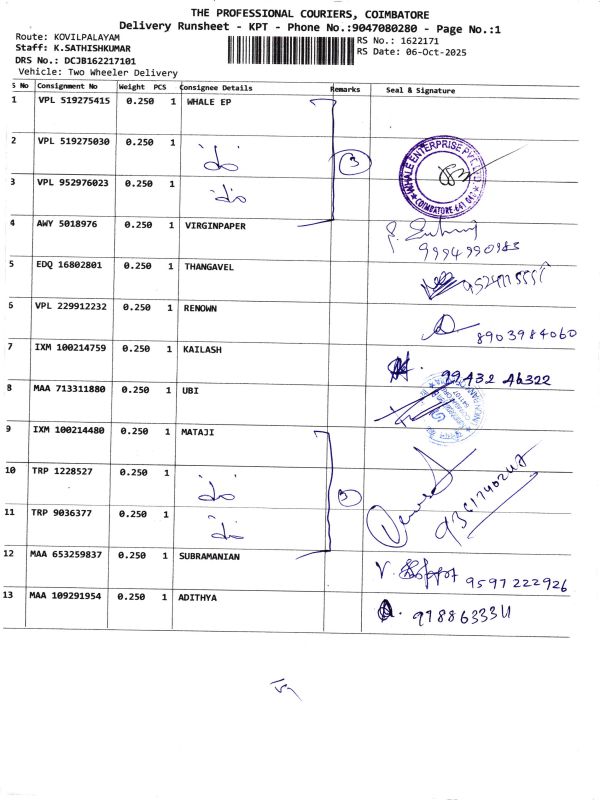 THE PROFESSIONAL COURIERS, COIMBATORE
Delivery Runsheet - KPT - Phone No.:9047080280 - Page No.:1
Route: KOVILPALAYAM
RS No.: 1622171
Staff: K.SATHISHKUMAR
RS Date: 06-Oct-2025
DRS No.: DCJB162217101
Vehicle: Two Wheeler Delivery
S No Consignment No Weight PCS Consignee Details Remarks Seal & Signature
1 VPL 519275415 0.250 1 WHALE EP
2 VPL 519275030 0.250 1
3
WHALE ENTERPRISE PVT LTD
COIMBATORE-641
3 VPL 952976023 0.250 1
4 AWY 5018976 0.250 1 VIRGINPAPER
9994990983
5 EDQ 16802801 0.250 1 THANGAVEL
6 VPL 229912232 0.250 1 RENOWN
8903984060
7 IXM 100214759 0.250 1 KAILASH
99432 46322
8 MAA 713311880 0.250 1 UBI
9 IXM 100214480 0.250 1 MATAJI
10 TRP 1228527 0.250 1
3
11 TRP 9036377 0.250 1
12 MAA 653259837 0.250 1 SUBRAMANIAN
9597222926
13 MAA 109291954 0.250 1 ADITHYA